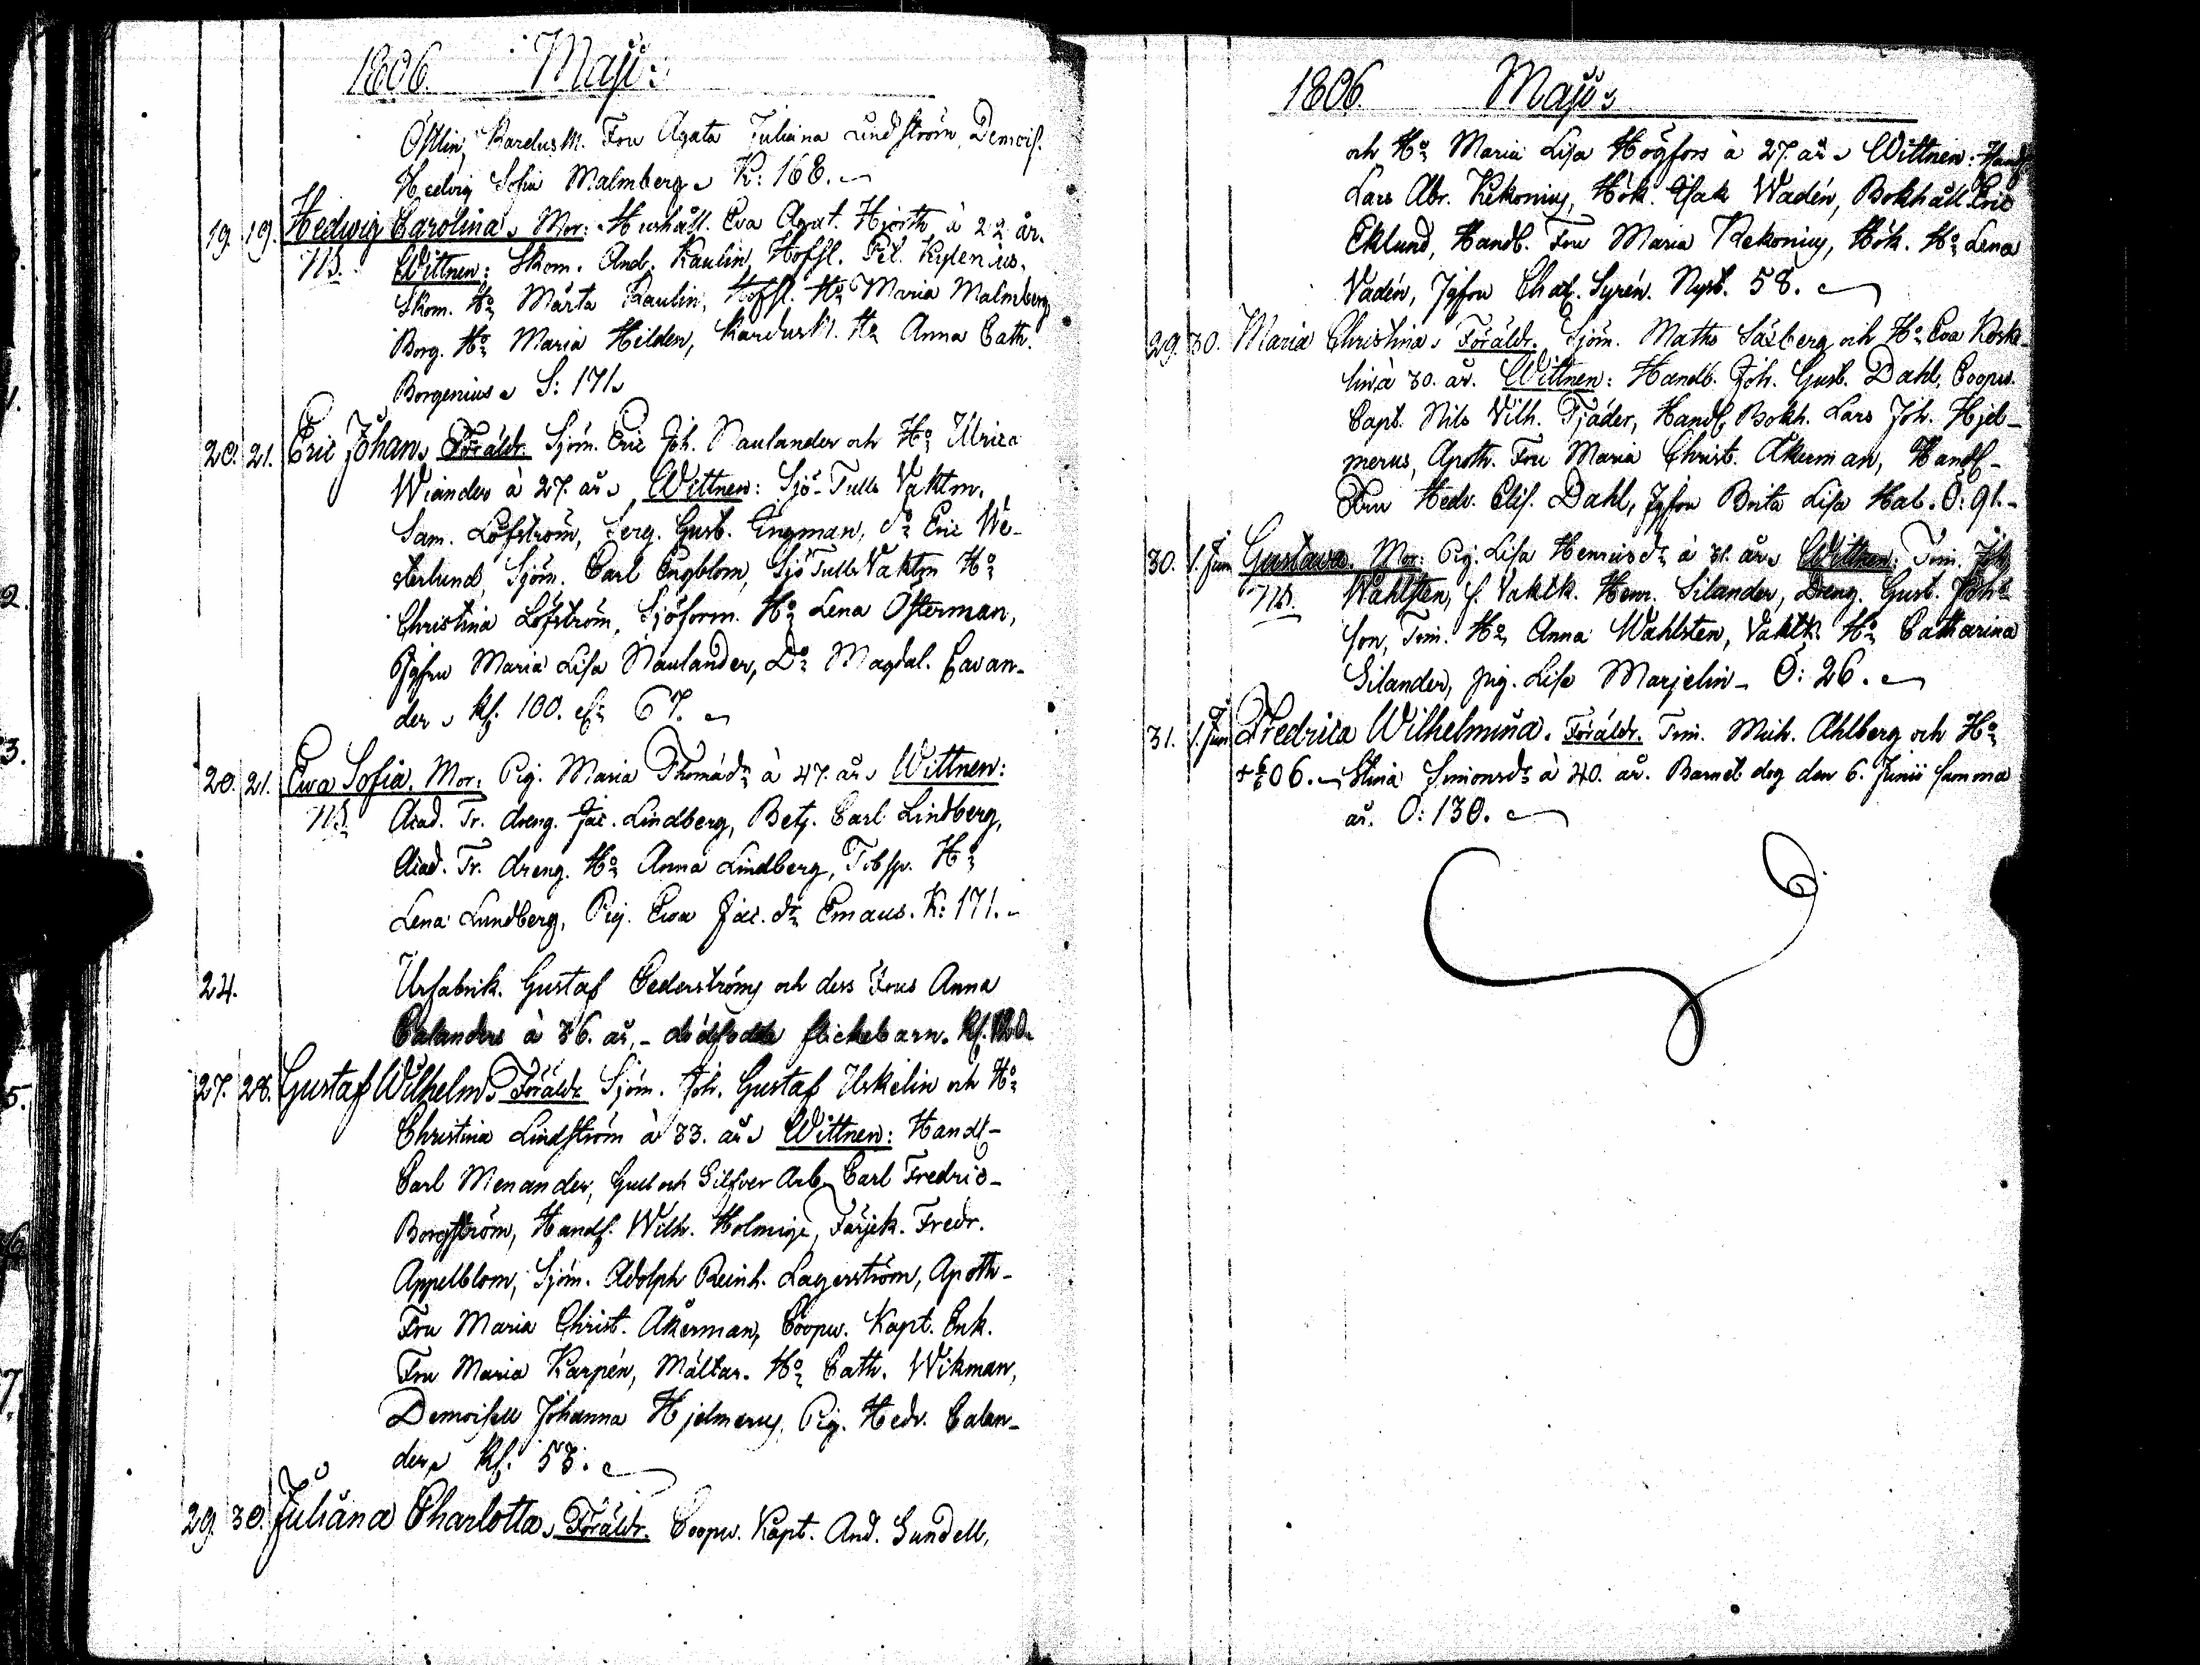 1806. Maji:
Östlin, KardusM. Fru Agata Juliana Lindström, Demois.
Hedvig Sofia Malmberg K: 168.
19. 19. Hedwig Carolina, Mor: Hushåll. Eva Agat. Hjorth à 22 år.
NB. Wittnen: Skom. And. Kaulin, Hofsl. Pet. Kylenius,
Skom. Ho Märta Kaulin, Hofsl. Ho Maria Malmberg
Borg. Ho Maria Hilden, KardusM. Ho Anna Cath.
Borgenius S: 171.
20. 21. Eric Johan, Föräldr. Sjöm. Eric Joh. Naulander och Ho Ulrica
Wiander à 27. år, Wittnen: Sjö-Tulls Vaktm.
Sam. Löfström, Serg. Gust. Engman, do Eric We-
sterlund, Sjöm. Carl Engblom, Sjö Tulls Vaktm Ho
Christina Löfström, Sjöform. Ho Lena Österman,
Jgfru Maria Lisa Naulander, Do Magdal. Cavan-
der, Kl. 100. 67.
20. 21. Ewa Sofia. Mor: Pig. Maria Thomædr à 47. år, Wittnen:
NB. Acad. Tr. dreng. Jac. Lindberg, Betj. Carl Lindberg,
Acad. Tr. dreng. Ho Anna Lindberg, Tobsp. Ho
Lena Lundberg, Pig. Ewa Jac. dr Emaus. K: 171.
24. Urfabrik. Gustaf Cederströms och dess Frus Anna
Calanders à 36. år, - dödfödda flickebarn. Kl.
27. 28. Gustaf Wilhelm, Föräldr. Sjöm. Joh. Gustaf Uskelin och Ho
Christina Lindström à 33. år, Wittnen: Handl-
Carl Menander, Gull och Silfver Arb. Carl Fredric-
Borgström, Handl. Wilh. Holmige, Färjek. Fredr.
Appelblom, Sjöm. Adolph Reinh. Lagerström, Apoth-
Fru Maria Christ. Åkerman, Coopv. Kapt. Enk.
Fru Maria Karpén, Mältar. Ho Cath. Wikman,
Demoisell Johanna Hjelmerus, Pig. Hedv. Calan-
der, Kl. 53.
29. 30. Juliana Charlotta, Föräldr. Coopv. Kapt. And. Sundell,
1806. Maji
och Ho Maria Lisa Högfors à 27. år, Wittnen: Handl
Lars Abr. Kekonius, Hök. Isak Wadén, Bokhåll. Eric
Eklund, Handl. Fru Maria Kekonius, Hök. Ho Lena
Vadén, Jgfru Charl. Syrén. Nyst. 58.
29. 30. Maria Christina, Föräldr. Sjöm. Maths Såsberg och Ho Eva Koske-
lin à 30. år. Wittnen: Handl. Joh. Gust. Dahl, Coopv.
Capt. Nils Vilh. Tjäder, Handl. Bokh. Lars Joh. Hjel-
merus, Apoth. Fru Maria Christ. Åkerman, Handl-
Fru Hedv. Elis. Dahl, Jgfru Brita Lisa Hal. Ö: 91.
30. 1. Jun Gustava. Mor: Pig. Lisa Henricsdr à 31. år, Wittnen: Tim. Joh
NB. Wahlsten, f. Vaktk. Henr. Silander, Dreng. Gust. Johs
son, Tim. Ho Anna Wahlsten, Vaktk. Ho Catharina
Silander, pig. Lisa Marjelin Ö: 26.
31. 1. Jun Fredrica Wilhelmina. Föräldr. Tim. Mich. Ahlberg och Ho
+ 6/6 06. Stina Simonsdr à 40. år. Barnet dog den 6. Junii samma
år. Ö: 130.